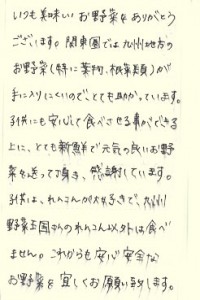 いつも美味しいお野菜をありがとう
ございます。関東圏では九州地方の
お野菜(特に葉物、根菜類)が
手に入りにくいので、とても助かっています。
子供にも安心して食べさせる事ができる
上に、とても新鮮で元気の良いお野
菜を送って頂き、感謝しています。
子供は、れんこんが大好きで、九州
野菜王国からのれんこん以外は食べ
ません。これからも安心安全な
お野菜を宜しくお願い致します。